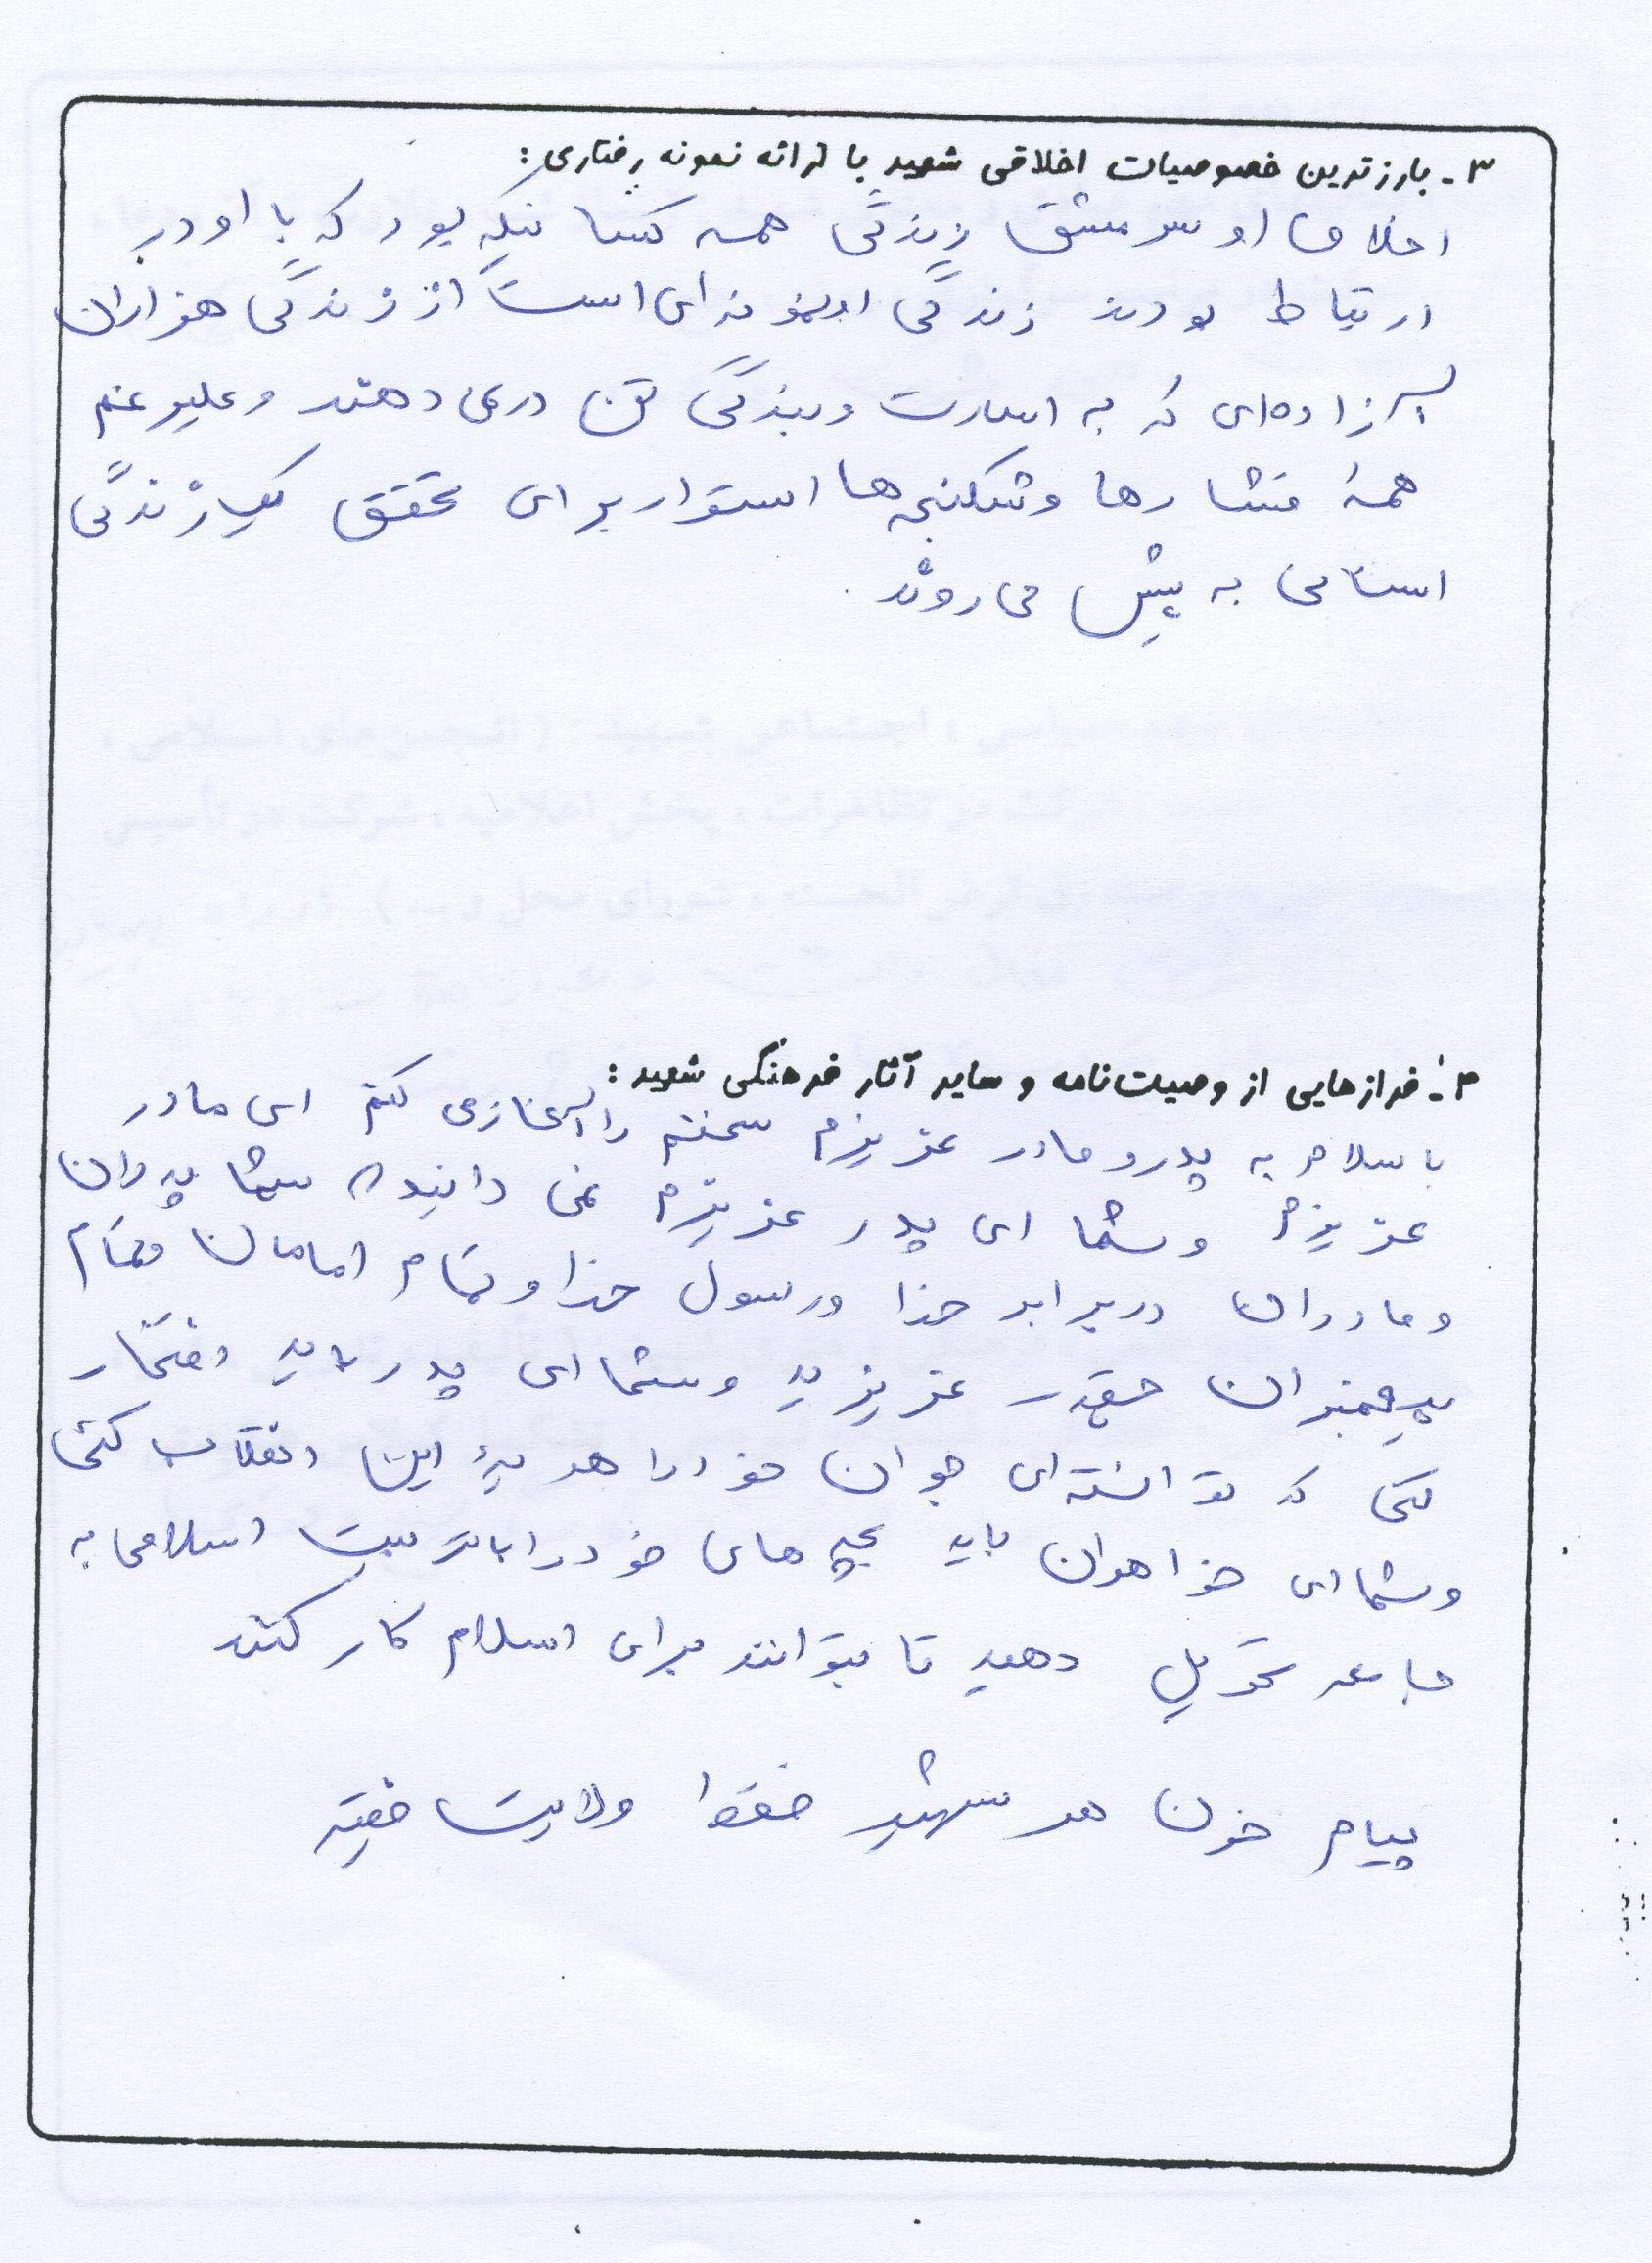 ۳ - بارزترین خصوصیات اخلاقی شهید با ارائه نمونه رفتاری :
اخلاق او سرمشق زندگی همه کسانیکه بود که با او در
ارتباط بودند زندگی او نمونه‌ای است از زندگی هزاران
پسر زاده‌ای که به اسارت و بندگی تن در نمی دهند و علیرغم
همهٔ فشارها و شکنجه‌ها استوار برای تحقق یک زندگی
انسانی به پیش می روند .
۴ - فرازهایی از وصیت‌نامه و سایر آثار فرهنگی شهید :
با سلام به پدر و مادر عزیزم سخنم را آغاز می کنم ای مادر
عزیزم و شما ای پدر عزیزم نمی دانید شما پدران
و مادران در برابر خدا و رسول خدا و تمام امامان و تمام
پیغمبران چقدر عزیزید و شما ای پدر باید افتخار
کنی که توانسته‌ای جوان خود را هدیهٔ این انقلاب کنی
و شما ای خواهران باید بچه های خود را با تربیت اسلامی به
جامعه تحویل دهید تا بتوانند برای اسلام کار کنند
پیام خون هر شهید فقط ولایت فقیه